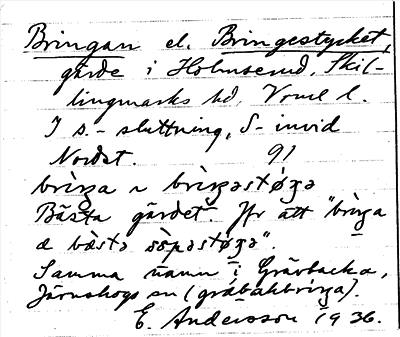 Bringan el. Bringestycket,
gärde i Holmserud, Skil-
lingmarks sd, Värml l.
I s.- sluttning, S- invid
Nordst. 91
brìŋa ɹ brìŋəstøɟə
Bästa gärdet. Jfr att "brìŋa
æ bæsta sòpəstøɟə".
Samma namn i Gräsbacka,
Järnskogs sn (gräbakbriŋa).
E. Andersson 1936.